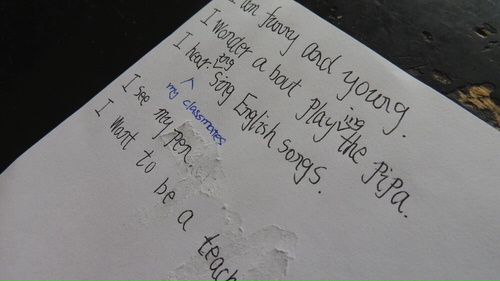 I am funny and young.
I wonder a bout Playing the PiPa.
I hear my classmates sing Song English Songs.
I see my pen.
I want to be a teach